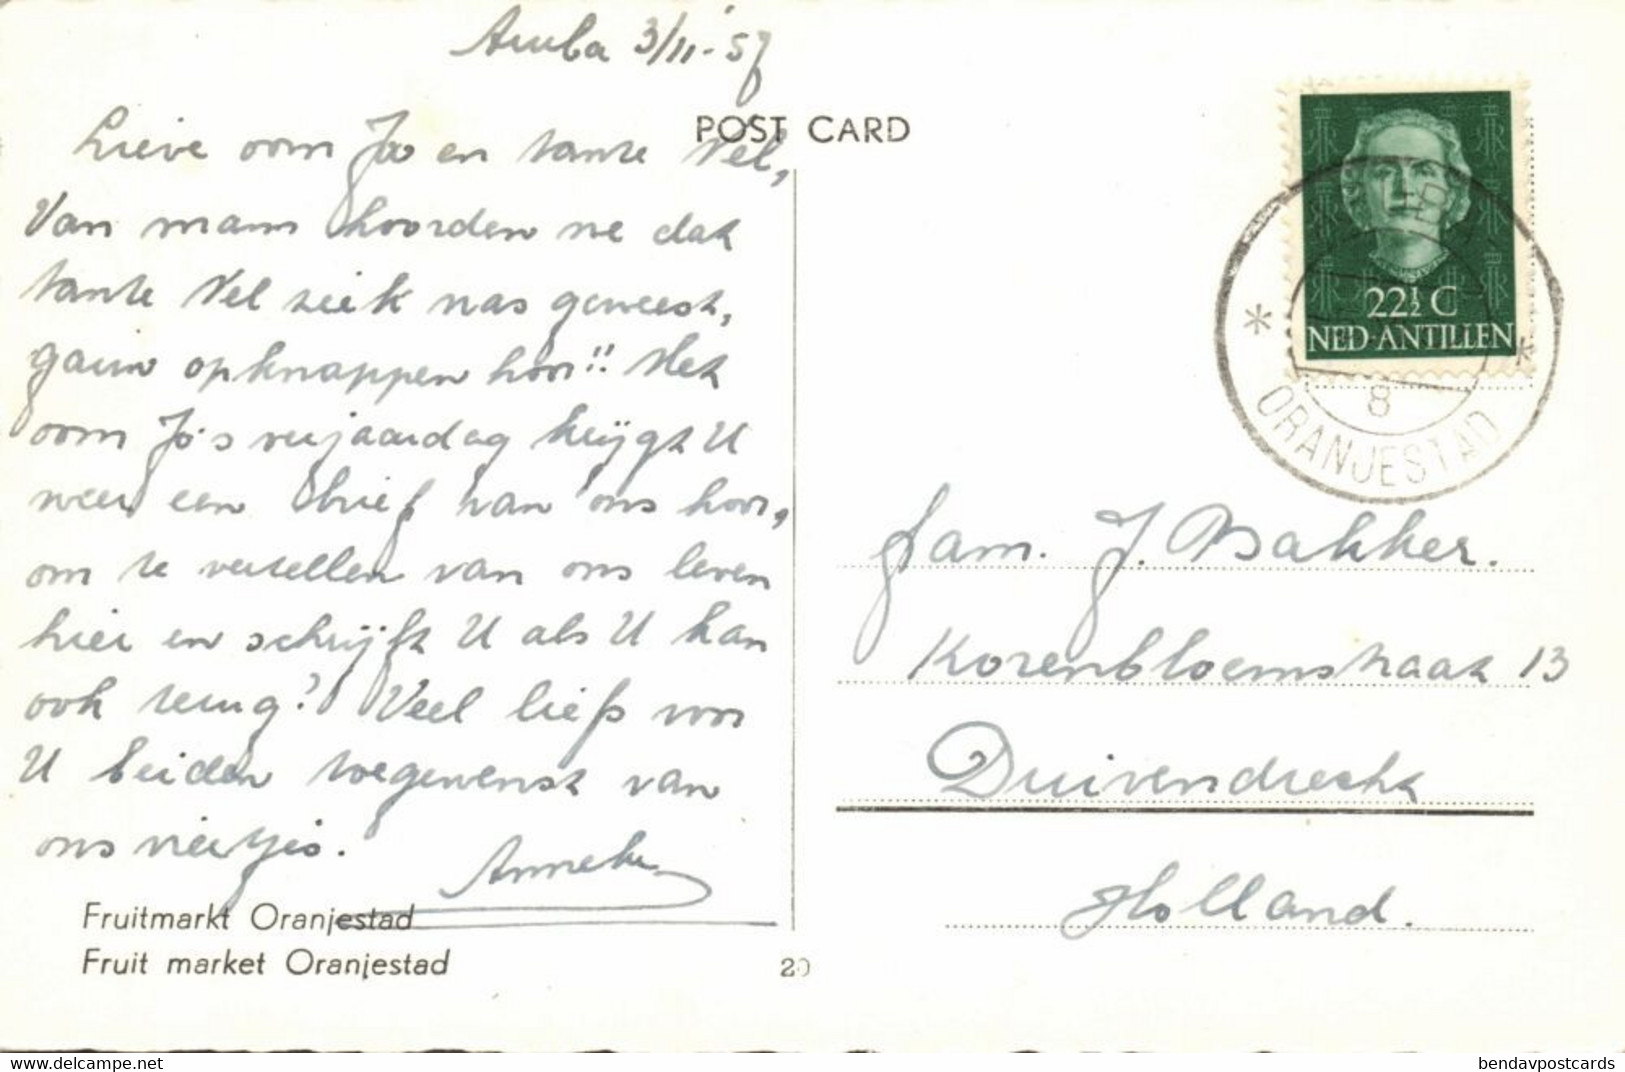 Aruba 3/11-'57
POST CARD
Lieve oom Jo en tante Nel,
Van mam hoorden we dat
tante Nel ziek was geweest,
gauw opknappen hoor!! Met
oom Jo's verjaardag krijgt U
weer een brief van ons hoor,
om te vertellen van ons leven
hier en schrijft U als U kan
ook terug? Veel liefs voor
U beiden toegewenst van
ons viertjes.
Anneke
Fruitmarkt Oranjestad
Fruit market Oranjestad
20
22½ C
NED·ANTILLEN
8
ORANJESTAD
fam. J. Bakker.
Korenbloemstraat 13
Duivendrecht
Holland.
bendavpostcards